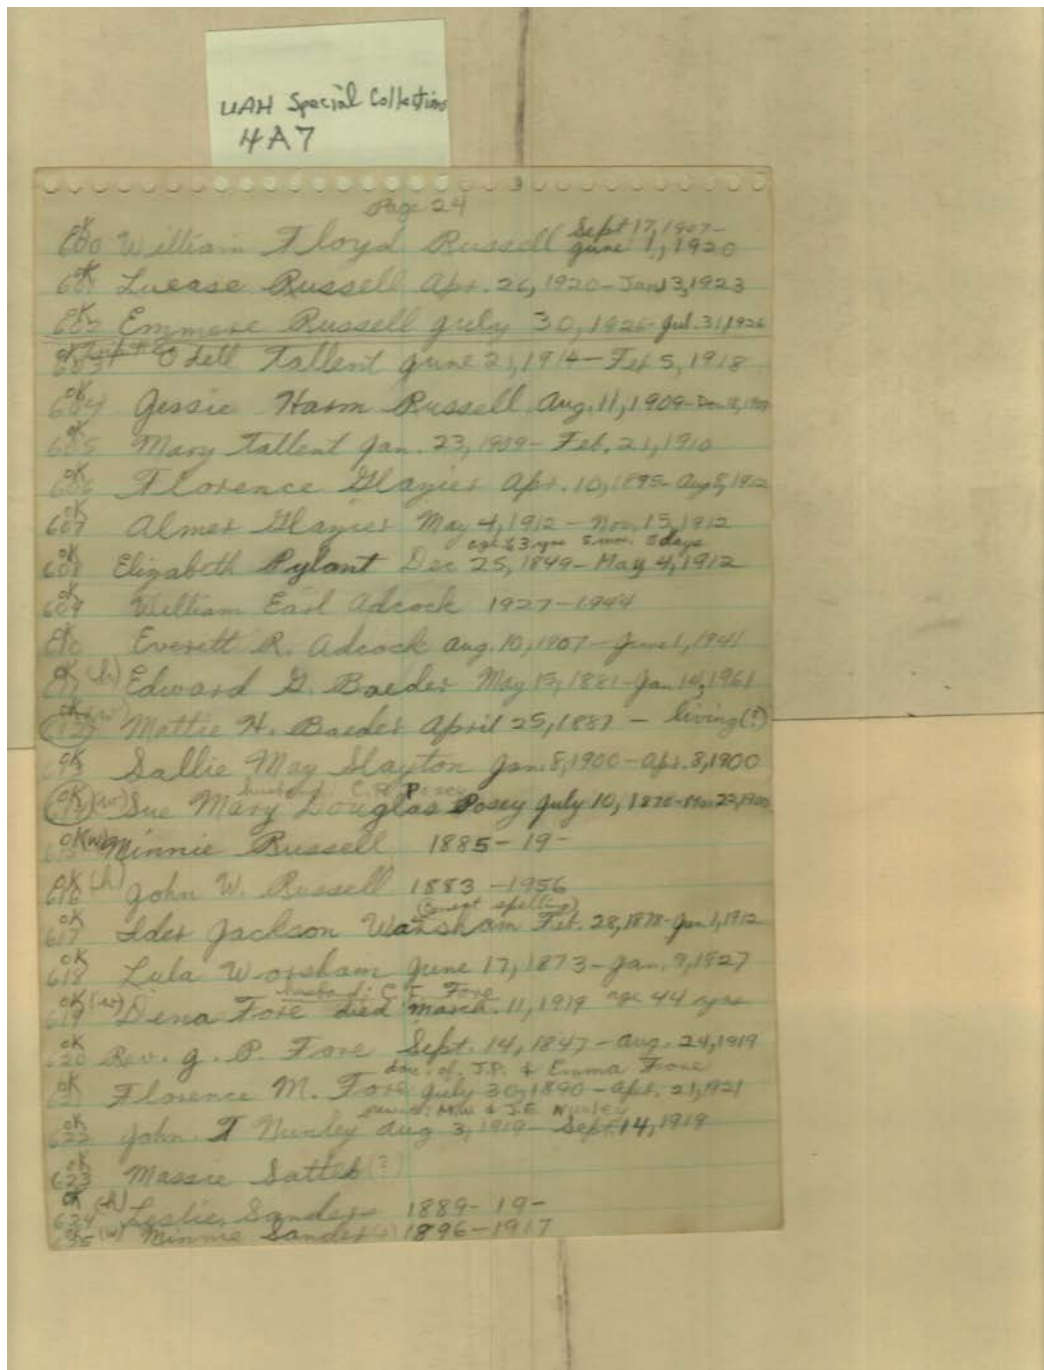 UAH Special Collections
4A7
Page 24
OK 600 William Floyd Russell Sept 17, 1907-
June 1, 1920
OK 601 Luease Russell Apr. 26, 1920 - Jan 3, 1923
OK 602 Emmere Russell July 30, 1926 - Jul. 31, 1926
OK 603 Odell Tallent June 21, 1914 - Feb 5, 1918
OK 604 Jessie Harm Russell Aug. 11, 1909 -
OK 605 Mary Tallent Jan. 23, 1909 - Feb. 21, 1910
OK 606 Florence Glazier Apr. 10, 1895 - Aug 5, 1912
OK 607 Almer Glazier May 4, 1912 - Nov. 15, 1912
age 63 yrs 5 mos. 5 days
OK 608 Elizabeth Pylant Dec 25, 1849 - May 4, 1912
OK 609 William Earl Adcock 1927 - 1944
OK 610 Everett R. Adcock Aug. 10, 1907 - June 1, 1941
OK 611 (h) Edward G. Baeder May 15, 1881 - Jan. 14, 1961
OK 612 (w) Mattie H. Baeder April 25, 1887 - living (?)
OK 613 Sallie May Slayton Jan. 8, 1900 - Apr. 8, 1900
husband: C.R. Posey
OK 614 (w) Sue Mary Douglas Posey July 10, 1870 -
OK 615 (w) Minnie Russell 1885 - 19-
OK 616 (h) John W. Russell 1883 - 1956
(correct spelling)
OK 617 Ider Jackson Warsham Feb. 28, 1878 - Jan 1, 1912
OK 618 Lula Worsham June 17, 1873 - Jan. 9, 1927
husband: C. I. Fore
OK 619 (w) Dena Fore died March. 11, 1919 age 44 yrs
OK 620 Rev. J. P. Fore Sept. 14, 1847 - Aug. 24, 1919
dau. of J.P. & Emma Fore
OK 621 Florence M. Fore July 30, 1890 - Apr. 21, 1921
M.W & J.E. Nunley
OK 622 John. T Nunley Aug 3, 1919 - Sept. 14, 1919
OK 623 Massie Satter (?)
OK 624 (h) Leslie Sanders 1889 - 19-
OK 625 (w) Minnie Sander(s) 1896 - 1917